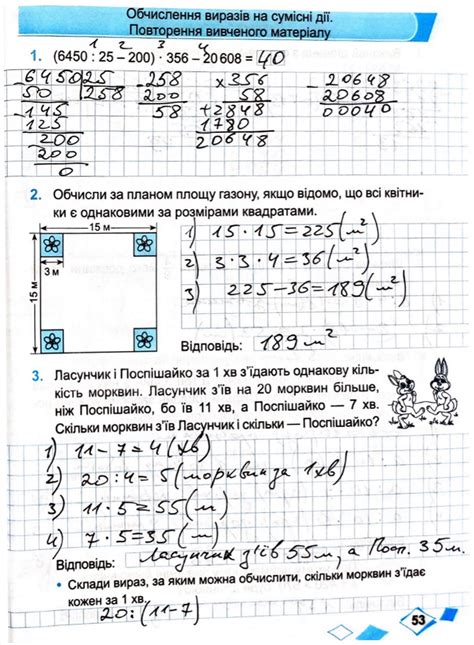 Обчислення виразів на сумісні дії.
Повторення вивченого матеріалу
1 2 3 4
1. (6450 : 25 – 200) · 356 – 20 608 = 40
6450 25
50 258
145
125
200
200
0
258
200
58
356
× 58
+ 2848
1780
20648
20648
20608
00040
2. Обчисли за планом площу газону, якщо відомо, що всі квітни-
ки є однаковими за розмірами квадратами.
15 м
3 м
15 м
1) 15 · 15 = 225 (м²)
2) 3 · 3 · 4 = 36 (м²)
3) 225 – 36 = 189 (м²)
Відповідь: 189 м²
3. Ласунчик і Поспішайко за 1 хв з'їдають однакову кіль-
кість морквин. Ласунчик з'їв на 20 морквин більше,
ніж Поспішайко, бо їв 11 хв, а Поспішайко — 7 хв.
Скільки морквин з'їв Ласунчик і скільки — Поспішайко?
1) 11 – 7 = 4 (хв)
2) 20 : 4 = 5 (морквин за 1 хв)
3) 11 · 5 = 55 (м)
4) 7 · 5 = 35 (м)
Відповідь: Ласунчик з'їв 55 м, а Посп. 35 м.
• Склади вираз, за яким можна обчислити, скільки морквин з'їдає
кожен за 1 хв.
20 : (11-7)
53